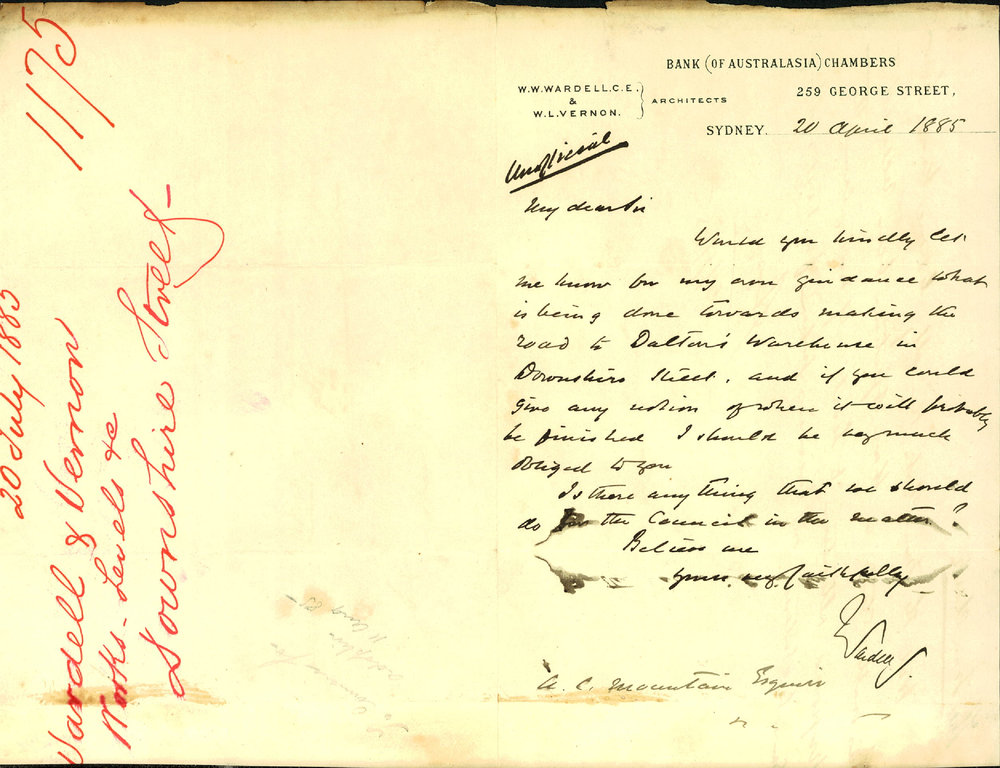 1175
20 July 1885
Wardell & Vernon
Works - Levels &c
Downshire Street -
BANK (OF AUSTRALASIA) CHAMBERS
W.W. WARDELL. C.E.
&
W.L. VERNON.
ARCHITECTS
259 GEORGE STREET,
SYDNEY. 20 April 1885
Unofficial
My dear Sir
Would you kindly let
me know for my own guidance what
is being done towards making the
road to Dalton's Warehouse in
Downshire Street, and if you could
give any notion of when it will probably
be finished I should be very much
obliged to you
Is there any thing that we should
do for the Council in the matter?
Believe me
Yours very faithfully
Wardell
A. C. Mountain Esquire